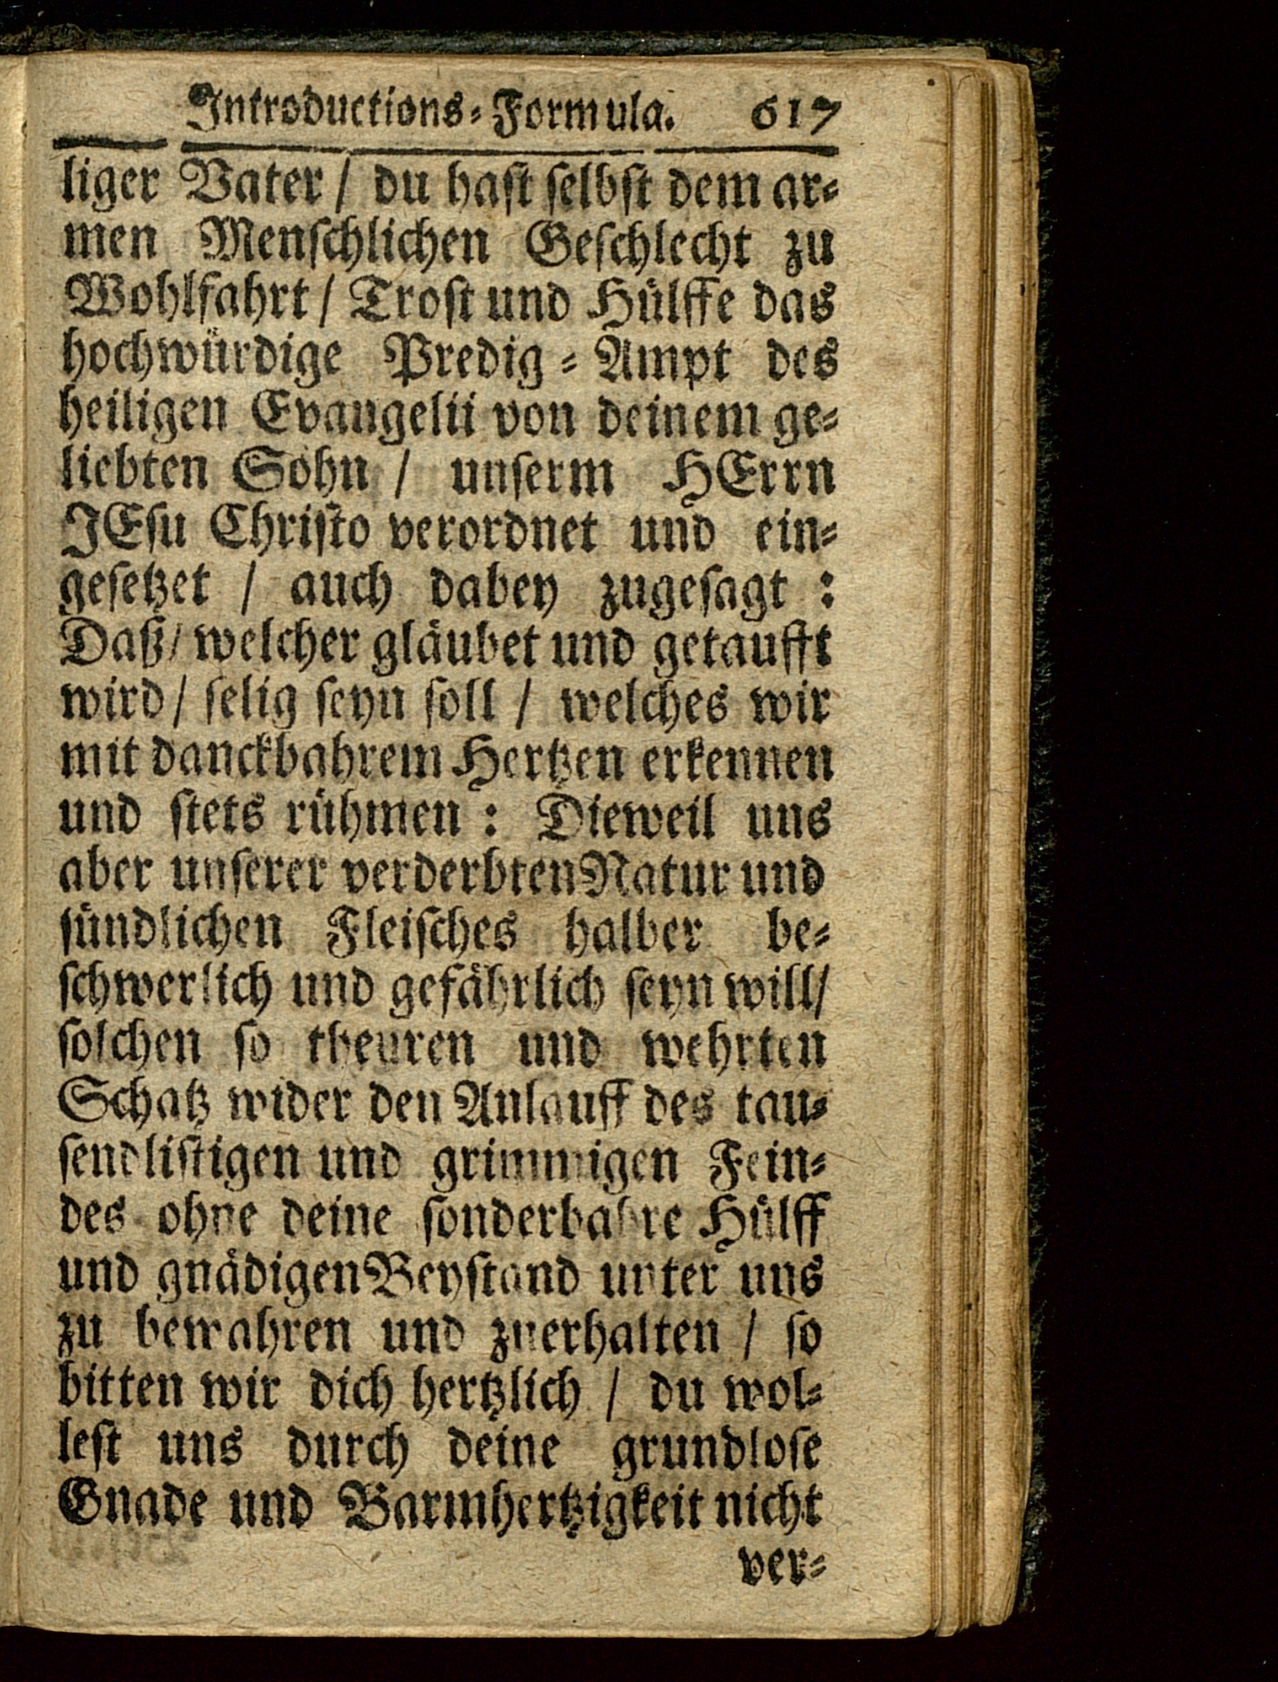 Introductions-Formula. 617
liger Vater / du hast selbst dem ar-
men Menschlichen Geschlecht zu
Wohlfahrt / Trost und Hülffe das
hochwürdige Predig-Ampt des
heiligen Evangelii von deinem ge-
liebten Sohn / unserm HErrn
JEsu Christo verordnet und ein-
gesetzet / auch dabey zugesagt :
Daß / welcher gläubet und getaufft
wird / selig seyn soll / welches wir
mit danckbahrem Hertzen erkennen
und stets rühmen : Dieweil uns
aber unserer verderbten Natur und
sündlichen Fleisches halber be-
schwerlich und gefährlich seyn will /
solchen so theuren und wehrten
Schatz wider den Anlauff des tau-
sendlistigen und grimmigen Fein-
des ohne deine sonderbahre Hülff
und gnädigen Beystand unter uns
zu bewahren und zuerhalten / so
bitten wir dich hertzlich / du wol-
lest uns durch deine grundlose
Gnade und Barmhertzigkeit nicht
ver-